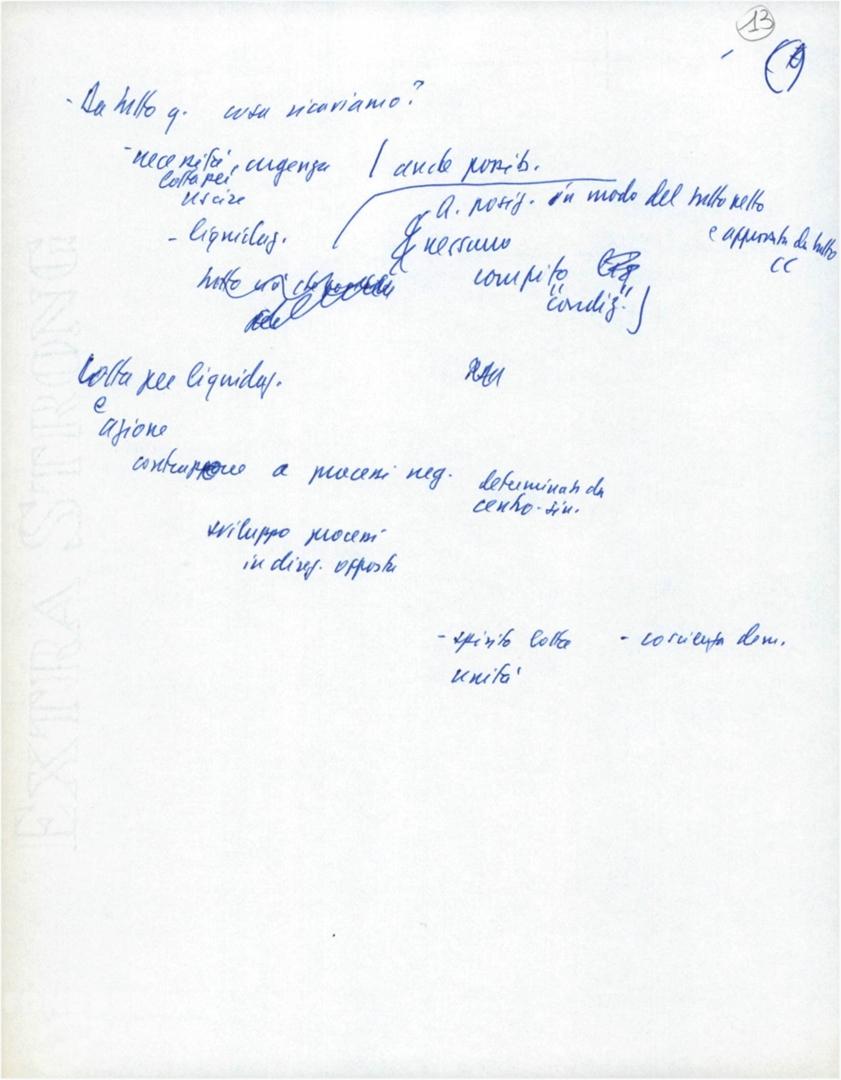 13
- Da tutto q. cosa ricaviamo?
- necessità, urgenza / anche possib.
lotta per
uscire
a. posiz. in modo del tutto netto
e approvata da tutto
CC
- liquidaz.
nessuno
compito
"condiz."
tutto
Lotta per liquidaz.
e
azione
a processi neg.
determinati da
centro-sin.
sviluppo processi
in direz. opposta
- spirito lotta - coscienza dem.
unità
EXTRA STRONG